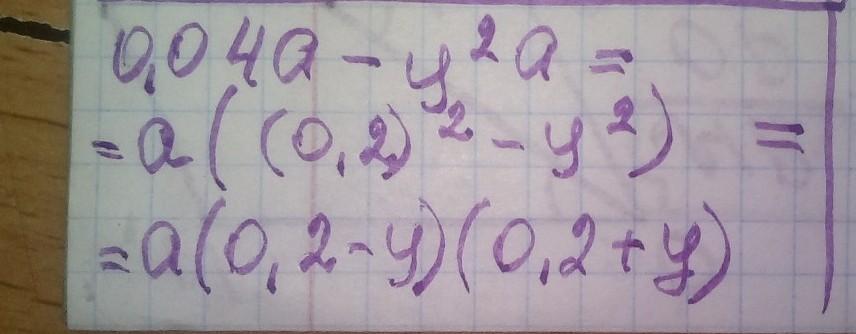 0,04a - y²a =
= a((0,2)² - y²) =
= a(0,2-y)(0,2+y)